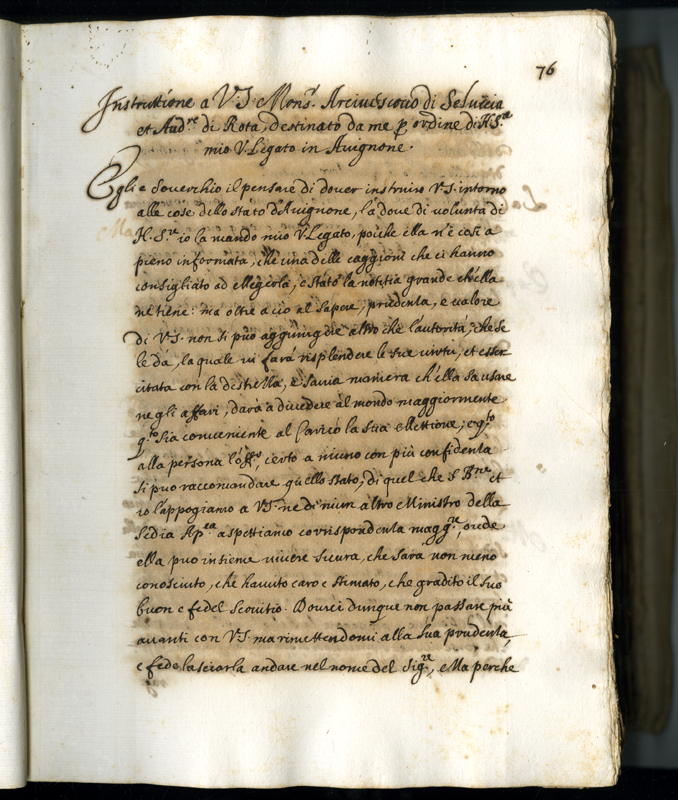 76
Instruttione a V.S. Mons.r Arciuescouo di Seluccia
et Aud.re di Rota, destinato da me p ordine di N.S.re
mio V. Legato in Auignone.
Egli e souerchio il pensare di douer instruire V.S. intorno
alle cose dello stato d'Auignone, là doue di uoluntà di
N.S.re io la mando mio V. Legato, poiche ella n'è così a
pieno informata, che una delle caggioni che ci hanno
consigliato ad elegerla, è stato la notitia grande ch'ella
ne tiene: ma oltre a cio al sapere, prudenza, e ualore
di V.S. non si può aggiunger altro che l'autorità, che se
le da, la quale ui farà risplendere le sue uirtù, et esser
citata con la destrezza, e sauia maniera ch'ella sa usare
ne gli affari, darà a diuedere al mondo maggiormente
q.to sia conueniente al Carico la sua elettione; e q.to
alla persona l'off.o, certo a niuno con più confidenza
si può raccomandare quello stato, di quel che S. B.ne et
io l'appogiamo a V.S. ne di niun altro Ministro della
Sedia Ap.ca aspettiamo corrispondenza magg.re, onde
ella puo insieme uiuere sicura, che sarà non meno
conosciuto, che hauuto caro e stimato, che gradito il suo
buon e fedel seruitio. Dourei dunque non passare più
auanti con V.S. ma rimettendomi alla sua prudenza,
e fede lasciarla andare nel nome del Sig.re, e Ma perche